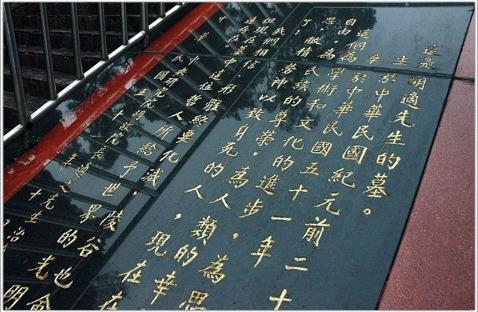 這是胡適先生的墓。
生於中華民國紀元前二十
卒於中華民國五十一年
這個為學術和文化的進步,為思
自由,為民族的尊榮,為人類的幸
思,敝精勞神以致身死的人,現在在
了!
我們相信形骸終要化滅,陵谷也會
但現在墓中這位哲人所給予世界的光明
遠存在。